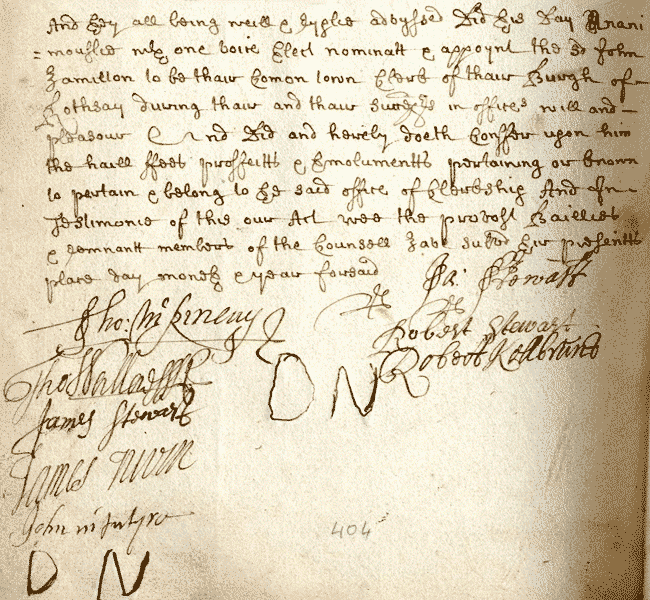 And they all being weill & ryplie advyssed Did this Day Unani
=mouslie with one voice Elect nominatt & appoynt the sd John
Hamilton to be thair Comon Town Clerk of thair Burgh of
Rothsay during thair and thair successors in office will and
pleasour And Did and hereby doeth Conffer upon him
the haill ffees proffeitts & Emolumentts pertaining or known
to pertain & belong to the said office of Clerkship And In
Testimonie of this our Act wee the provost Baillies
& remnant members of the Counsell have subd thir presentts
place day moneth & year forsaid
Ja: Stewart
Tho: McKinevy
Robert Stewart
Tho Wallace
Robert
D N
James Stewart
James Nivin
John mcIntyre
404
D N